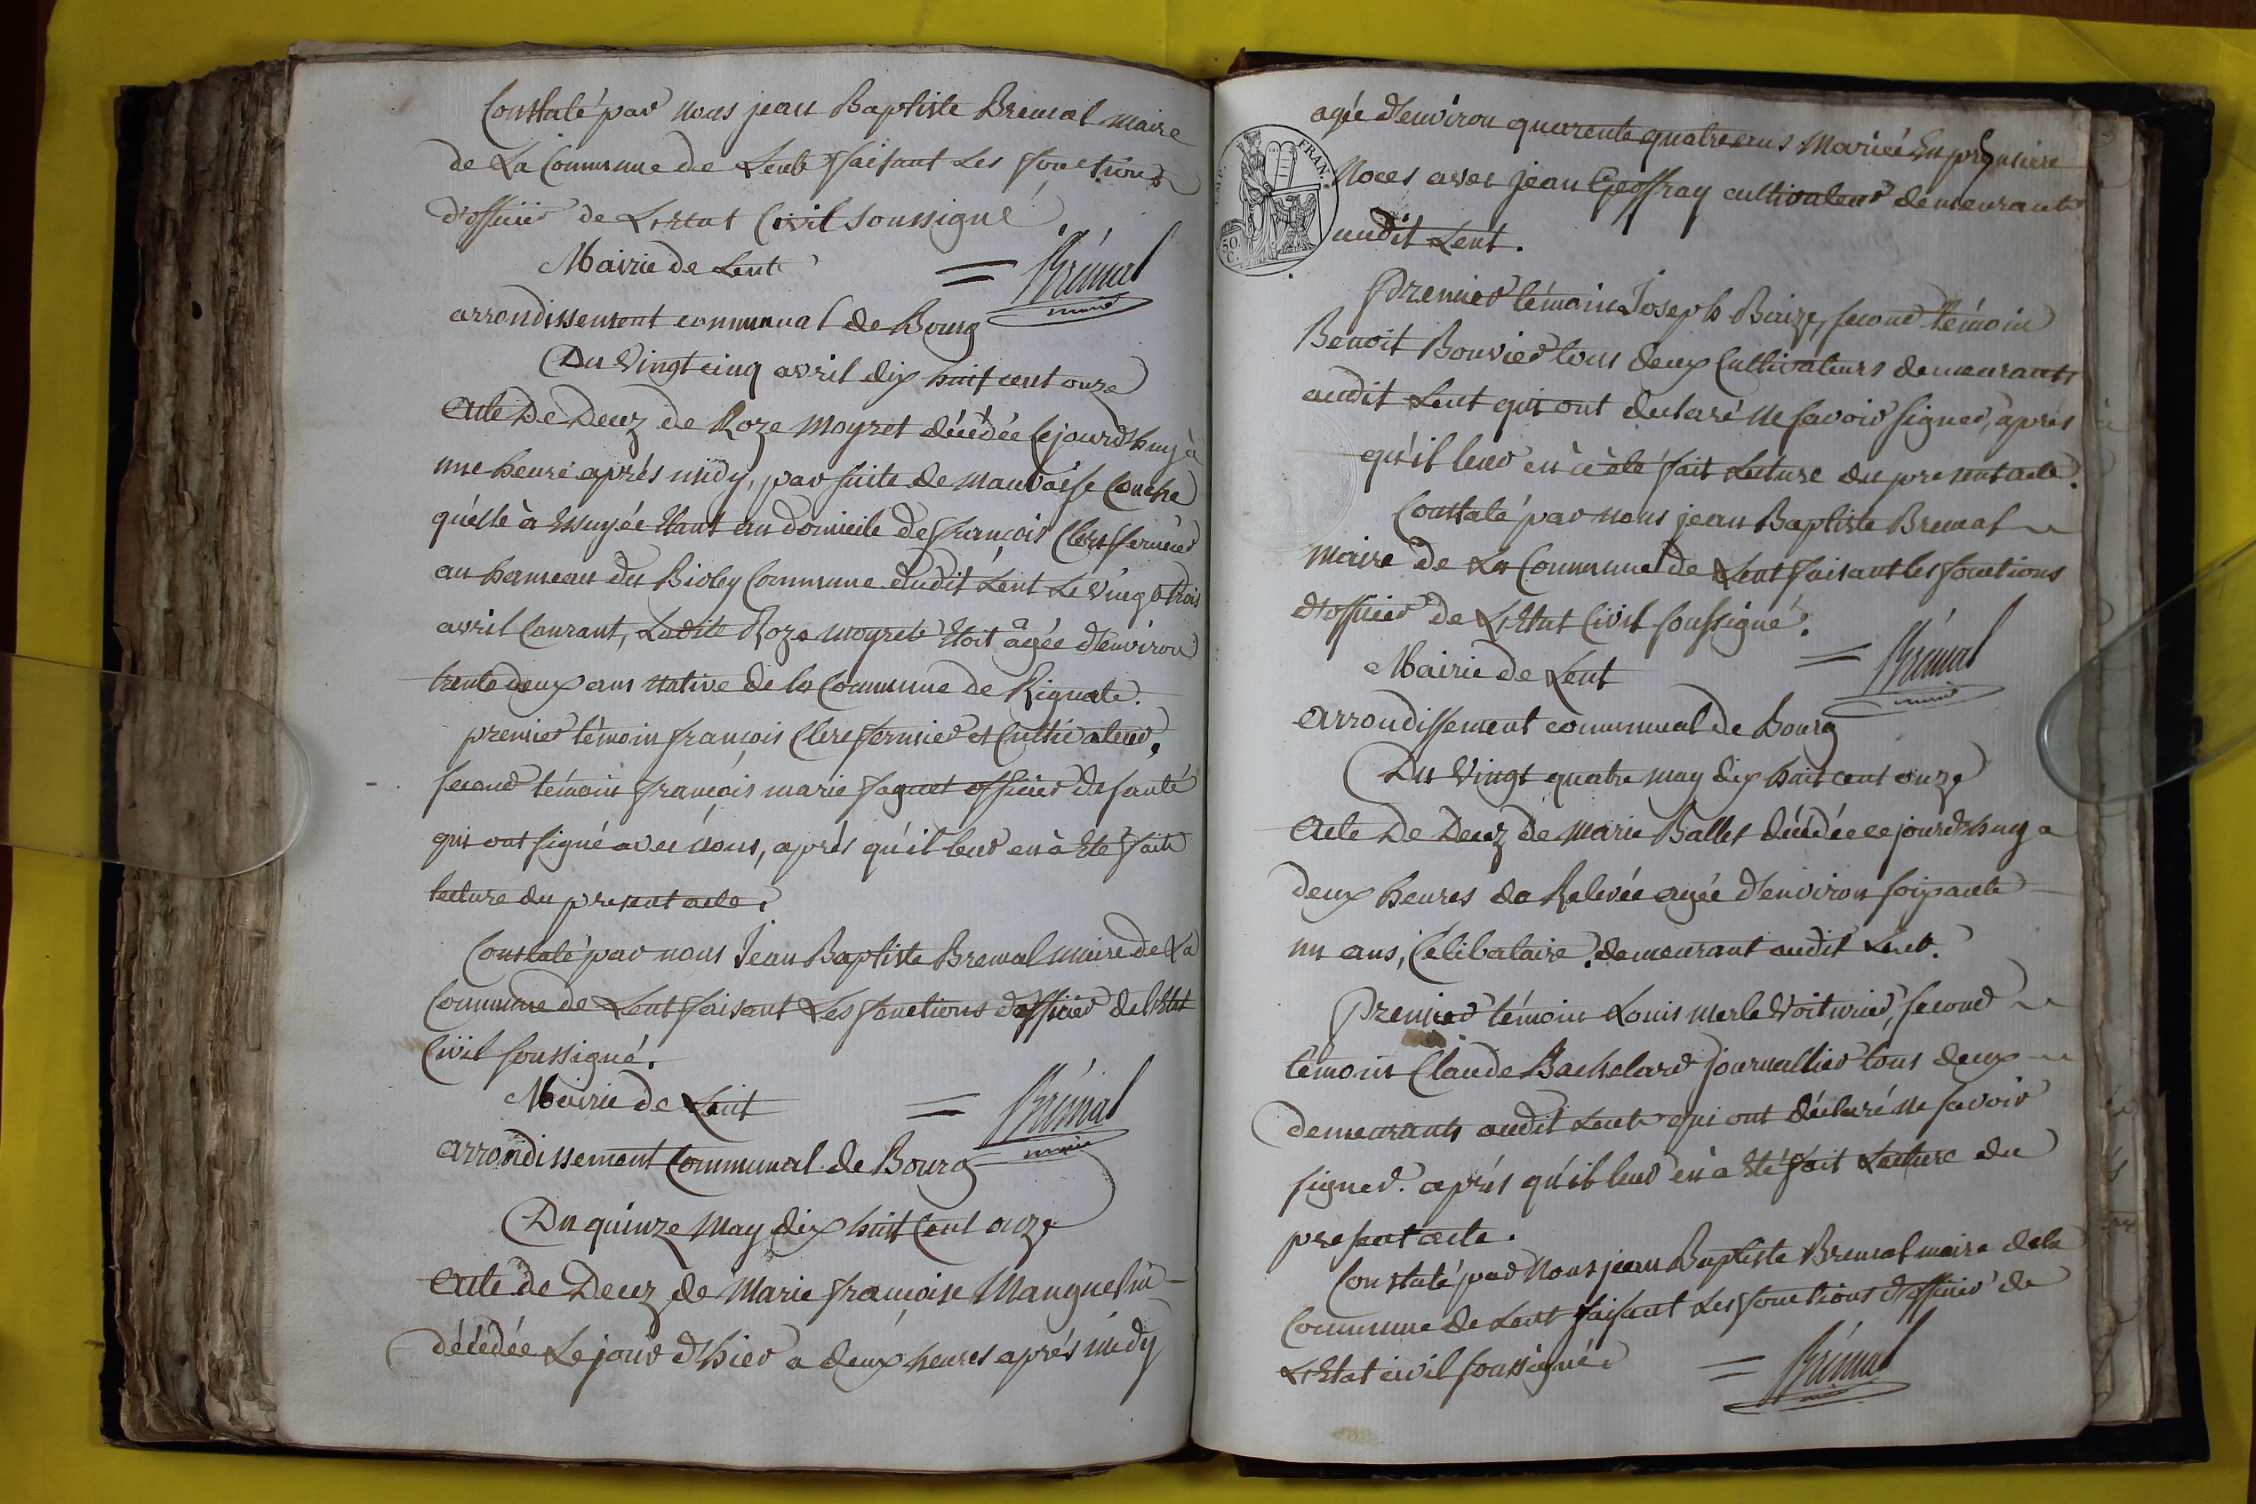 Constaté par nous jean Baptiste Bremal maire
de La Commune de Lent faisant Les fonctions
d'officier de L'Etat Civil soussigné
Mairie de Lent = Brémal
maire
arrondissement communal de Bourg
Du Vingt cinq avril dix huit cent onze
Acte De Decez de Roze Moyret décédée Cejourd'huy à
une heure aprés midy, par suite de mauvaise Couche
qu'elle à Essuyée Etant au domicile de françois Clerc fermier
au hameau du Bioley Commune dudit Lent Le Vingt trois
avril Courant, Ladite Roze moyret Etoit âgée d'environ
trente deux ans Native de la Commune de Rignate.
premier témoin françois Clerc fermier et Cultivateur,
second témoin françois marie faguet officier de santé
qui ont signé avec Nous, aprés qu'il leur en à Eté fait
lecture du present acte.
Constaté par nous Jean Baptiste Bremal maire de La
Commune de Lent faisant Les fonctions d'officier de l'Etat
Civil soussigné.
Mairie de Lent = Brémal
maire
arrondissement Communal de Bourg
Du quinze May dix huit Cent onze
Acte de Decez de Marie françoise Manguelin
décédée Le jour d'hier a deux heures aprés midy
agée d'environ quarente quatre ans Mariée En premiere
Noces avec jean Geoffray cultivateur demeurant
audit Lent.
FRAN.
50
C.
Premier témoin Joseph Birize, second témoin
Benoit Bouvier tous deux Cultivateurs demeurants
audit Lent qui ont declaré ne savoir signer, aprés
qu'il leur en à èté fait Lecture du present acte.
Constaté par nous jean Baptiste Bremal
maire de La Commune de Lent faisant les fonctions
d'officier de L'Etat Civil soussigné.
Mairie de Lent = Brémal
maire
Arrondissement communal de Bourg
Du Vingt quatre may dix huit cent onze
Acte De Decez de Marie Ballet décédée cejourd'huy a
deux heures de Relevée agée d'environ soixante
un ans, Celibataire demeurant audit Lent.
Premier témoin Louis Merle Voiturier, second
témoin Claude Bachelard journallier tous deux
demeurants audit Lent qui ont déclaré ne savoir
signer. aprés qu'il leur en à Eté fait Lecture du
present acte.
Constaté par Nous jean Baptiste Bremal maire de la
Commune de Lent faisant Les fonctions d'officier de
L'Etat civil soussigné = Brémal